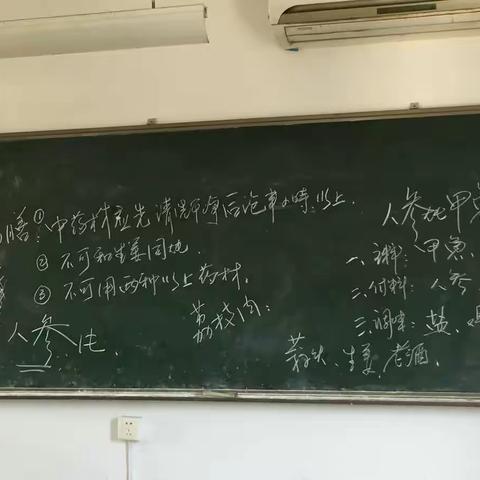 膳:①中药材应先清洗干净后泡单小时以上.
②不可和生姜同炖
③不可用两种以上药材.
人参.
荔枝肉:
人参炖甲鱼
一、主料:甲鱼、
二、付料:人参
三、调味:盐、
蒜头、生姜、老酒.